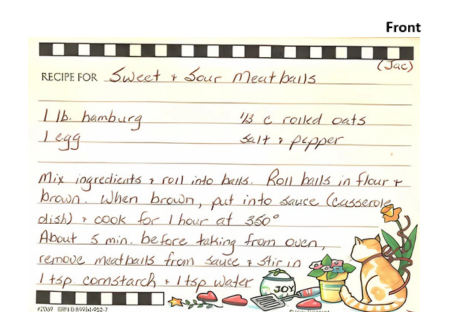 Front
(Jac)
RECIPE FOR Sweet + Sour Meatballs
1 lb. hamburg 1/3 c rolled oats
1 egg salt + pepper
Mix ingredients + roll into balls. Roll balls in flour +
brown. When brown, put into sauce (casserole
dish) + cook for 1 hour at 350°
About 5 min. before taking from oven,
remove meatballs from sauce + stir in
1 tsp cornstarch + 1 tsp water
JOY